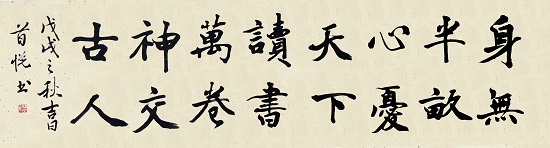 身無
半畝
心憂
天下
讀書
萬卷
神交
古人
戊戌之秋吉日
悦书